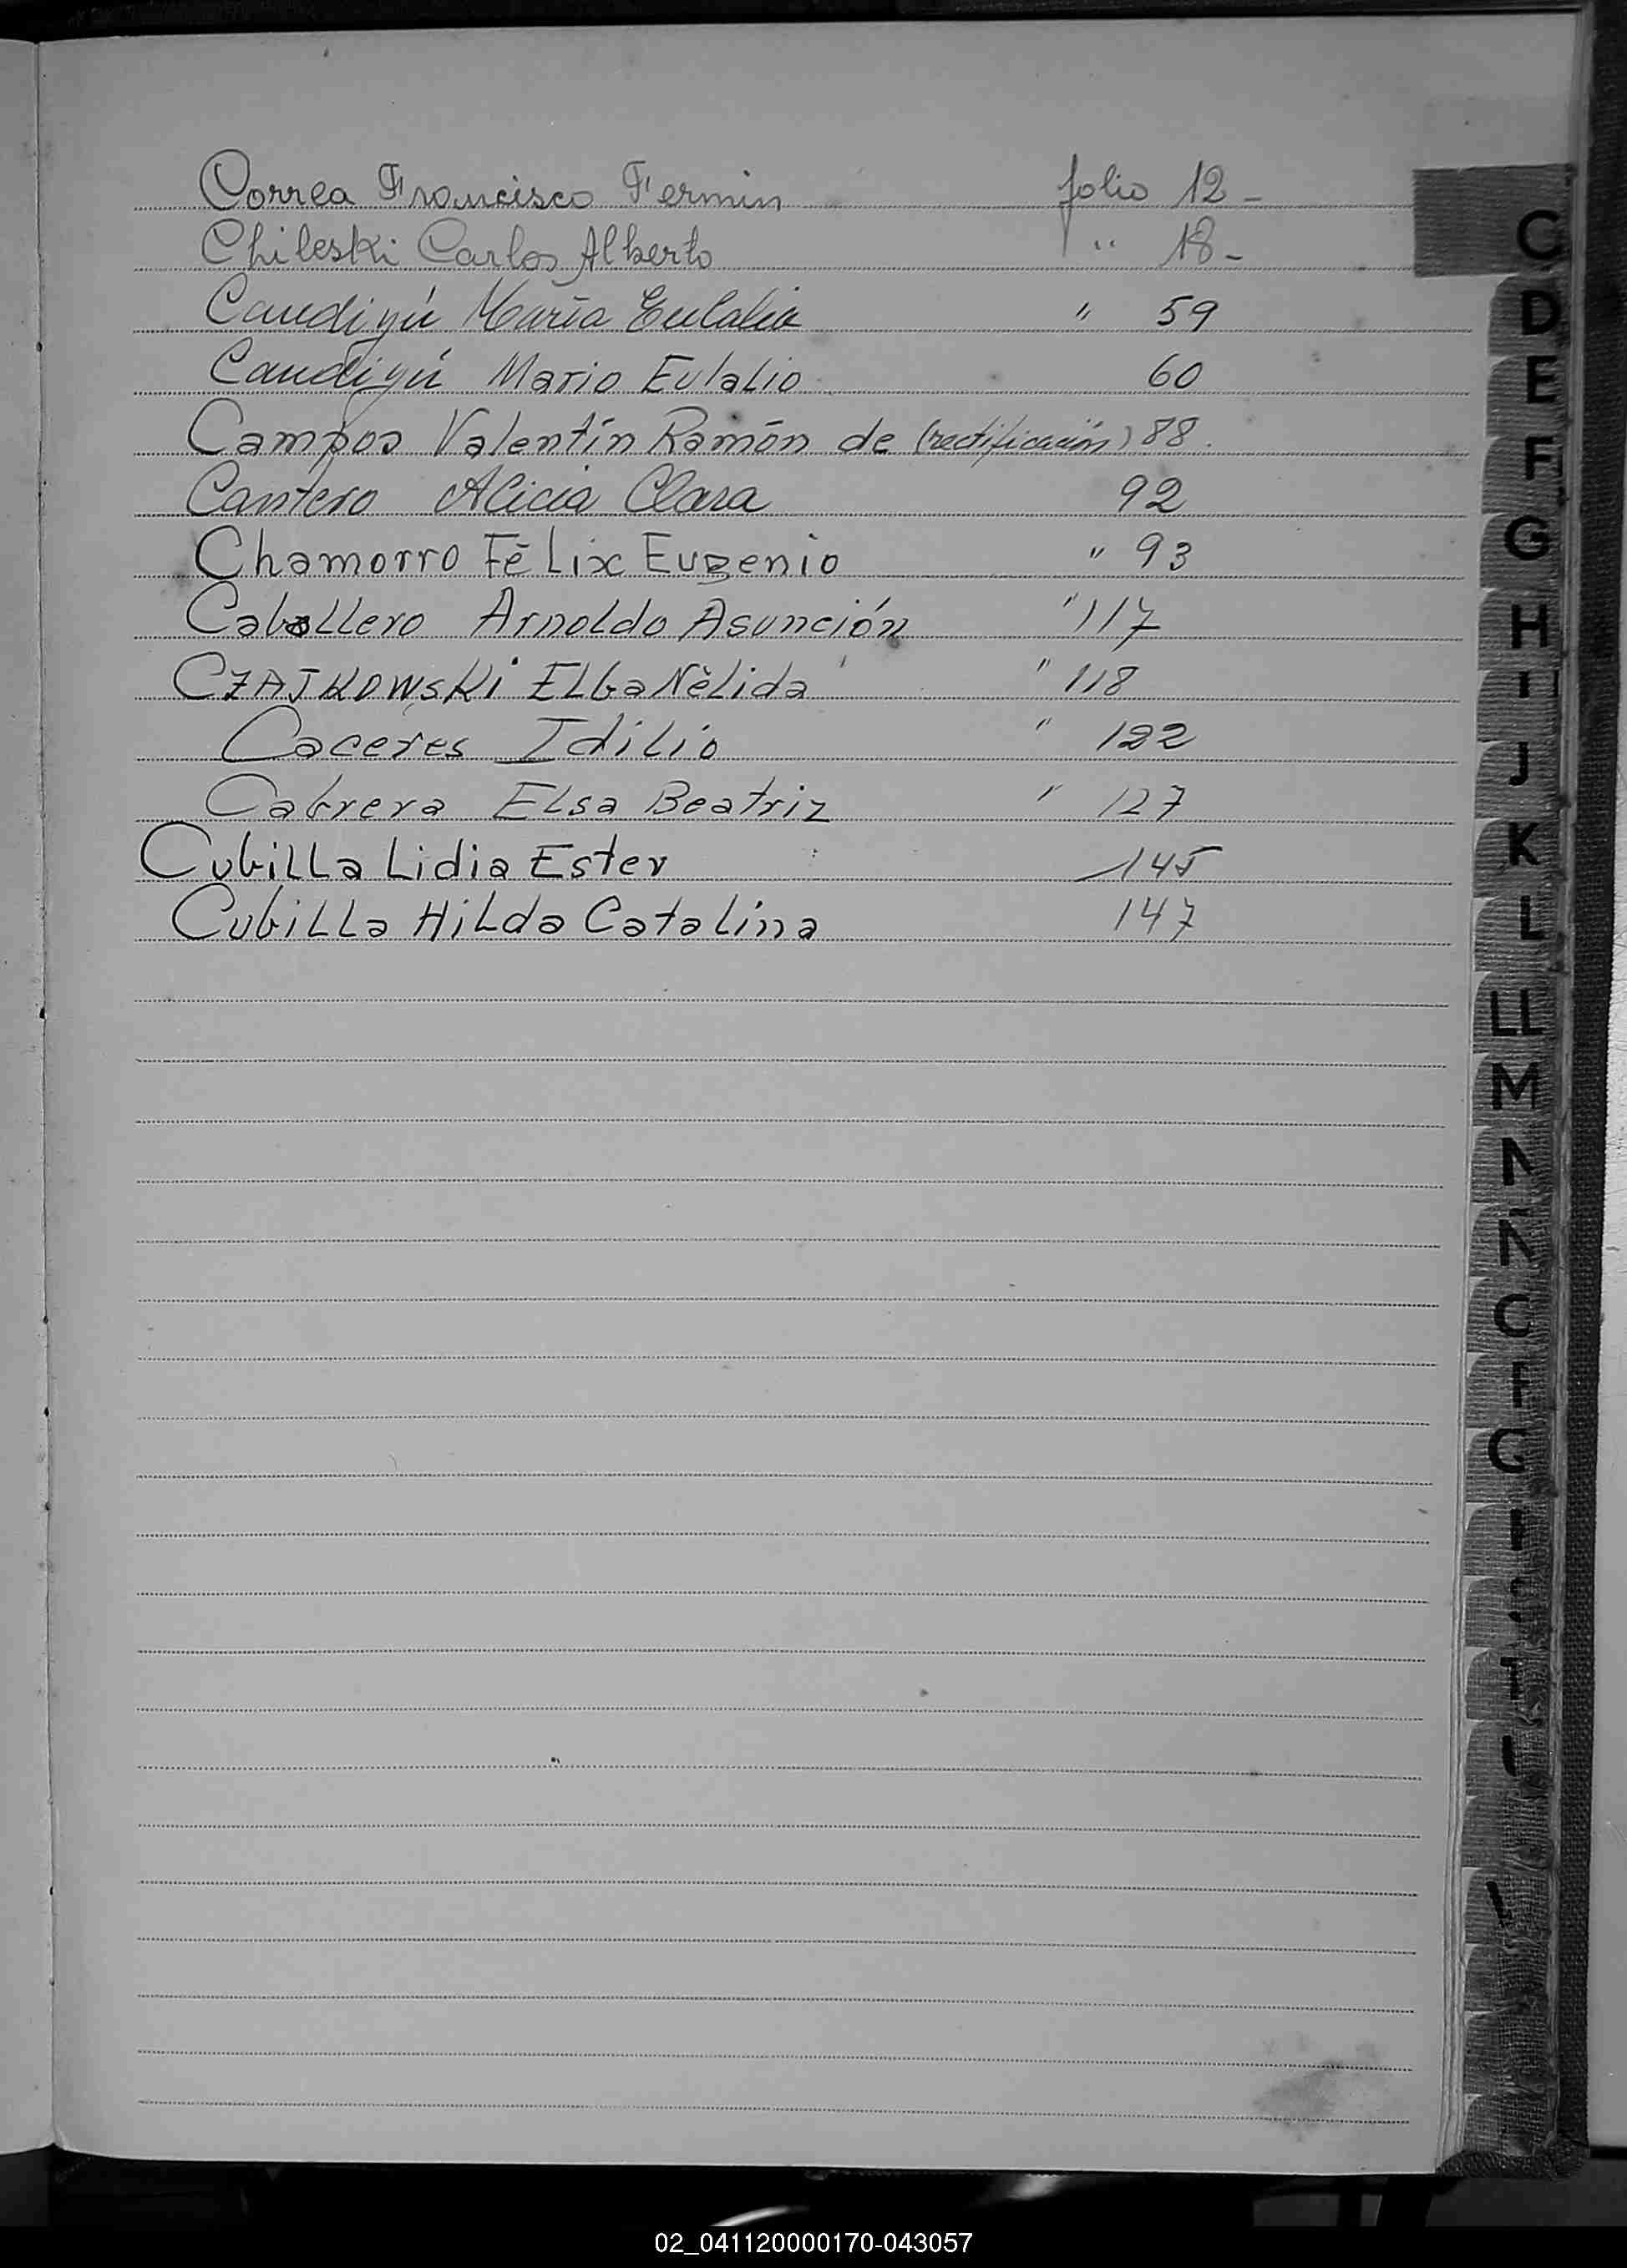 Correa Francisco Fermin folio 12 -
Chileski Carlos Alberto " 18 -
Candiyú María Eulalia " 59
Candiyú Mario Eulalio 60
Campos Valentín Ramón de (rectificación) 88.
Cantero Alicia Clara 92
Chamorro Félix Eugenio " 93
Caballero Arnoldo Asunción " 117
CZAJKOWSKi ELba Nèlida " 118
Caceres Idilio " 122
Cabrera Elsa Beatriz " 127
Cubilla Lidia Ester 145
Cubilla Hilda Catalina 147
C
D
E
F
G
H
I
J
K
L
LL
M
N
Ñ
02_041120000170-043057